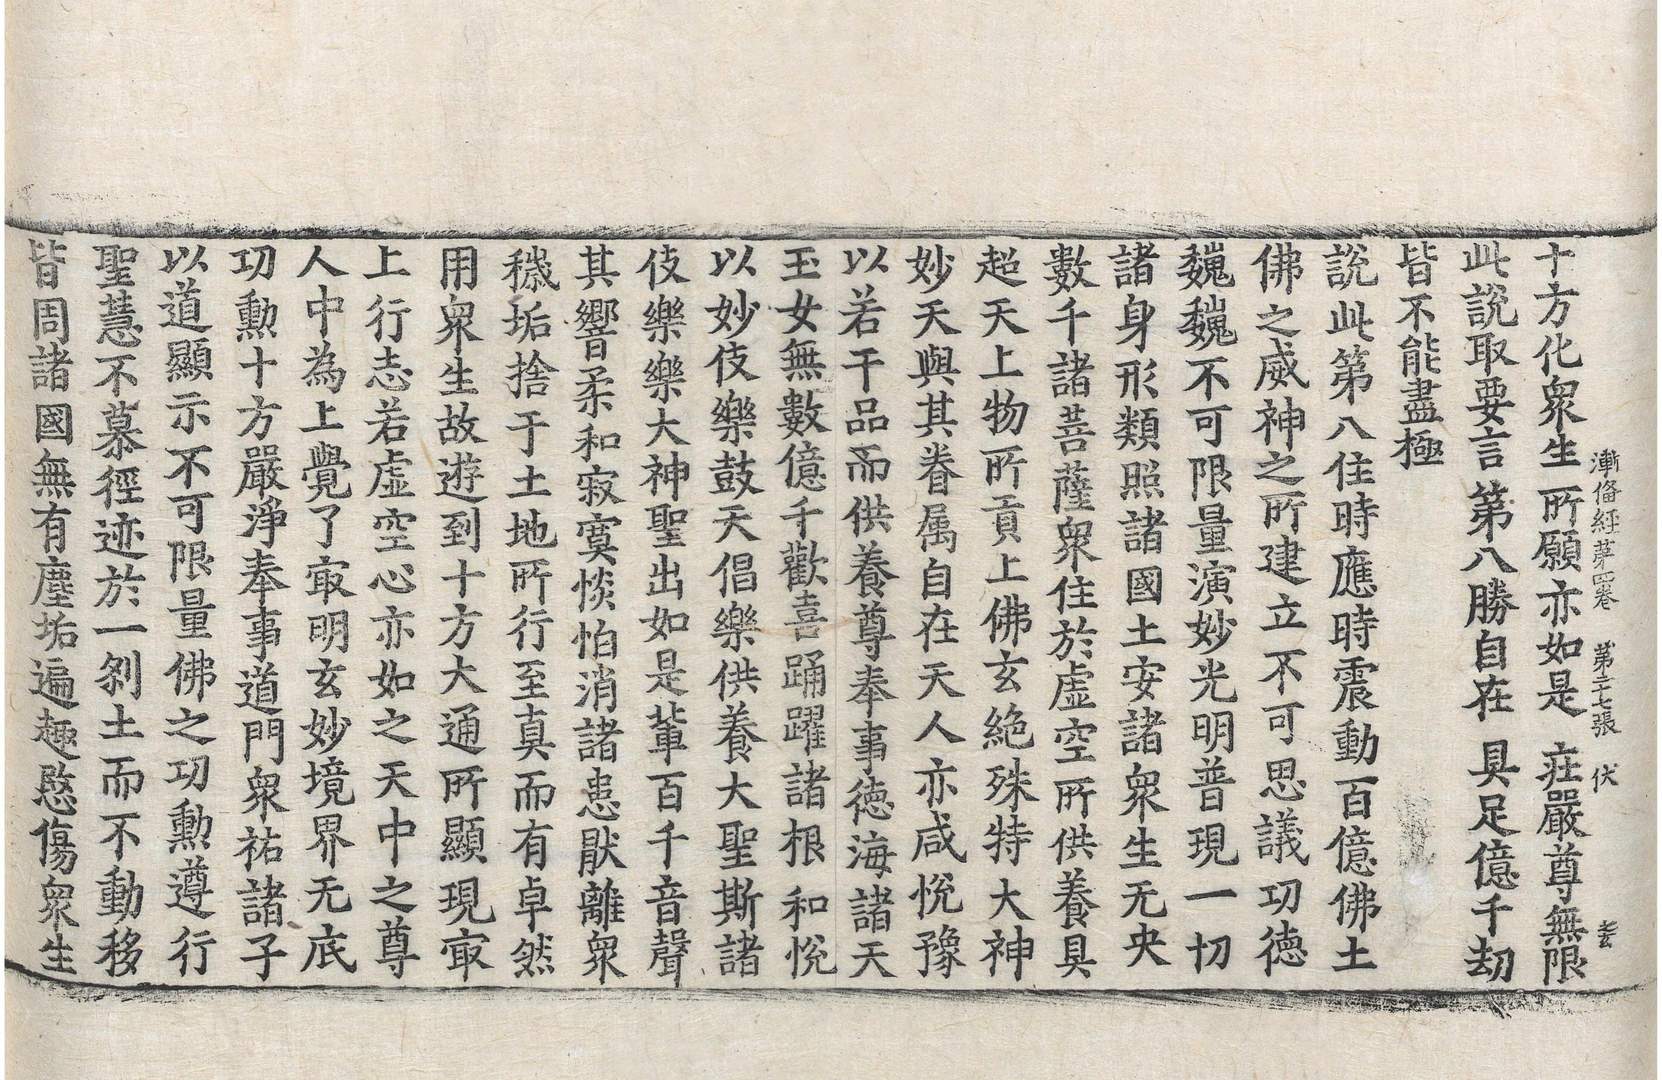 漸俻經第四卷 第三七張 伏
十方化衆生所願亦如是 莊嚴尊無限
此說取要言第八勝自在 具足億千劫
皆不能盡極
說此第八住時應時震動百億佛土
佛之威神之所建立不可思議功德
巍巍不可限量演妙光明普現一切
諸身形類照諸國土安諸衆生无央
數千諸菩薩衆住於虛空所供養具
超天上物所貢上佛玄絶殊特大神
妙天與其眷属自在天人亦咸悅豫
以若干品而供養尊奉事德海諸天
玉女無數億千歡喜踊躍諸根和悅
以妙伎樂鼓天倡樂供養大聖斯諸
伎樂樂大神聖出如是軰百千音聲
其響柔和寂寞惔怕消諸患猒離衆
穢垢捨于土地所行至真而有卓然
用衆生故遊到十方大通所顯現㝡
上行志若虛空心亦如之天中之尊
人中為上覺了㝡明玄妙境界无底
功勳十方嚴淨奉事道門衆祐諸子
以道顯示不可限量佛之功勳遵行
聖慧不慕徑迹於一剎土而不動移
皆周諸國無有塵垢遍趣愍傷衆生